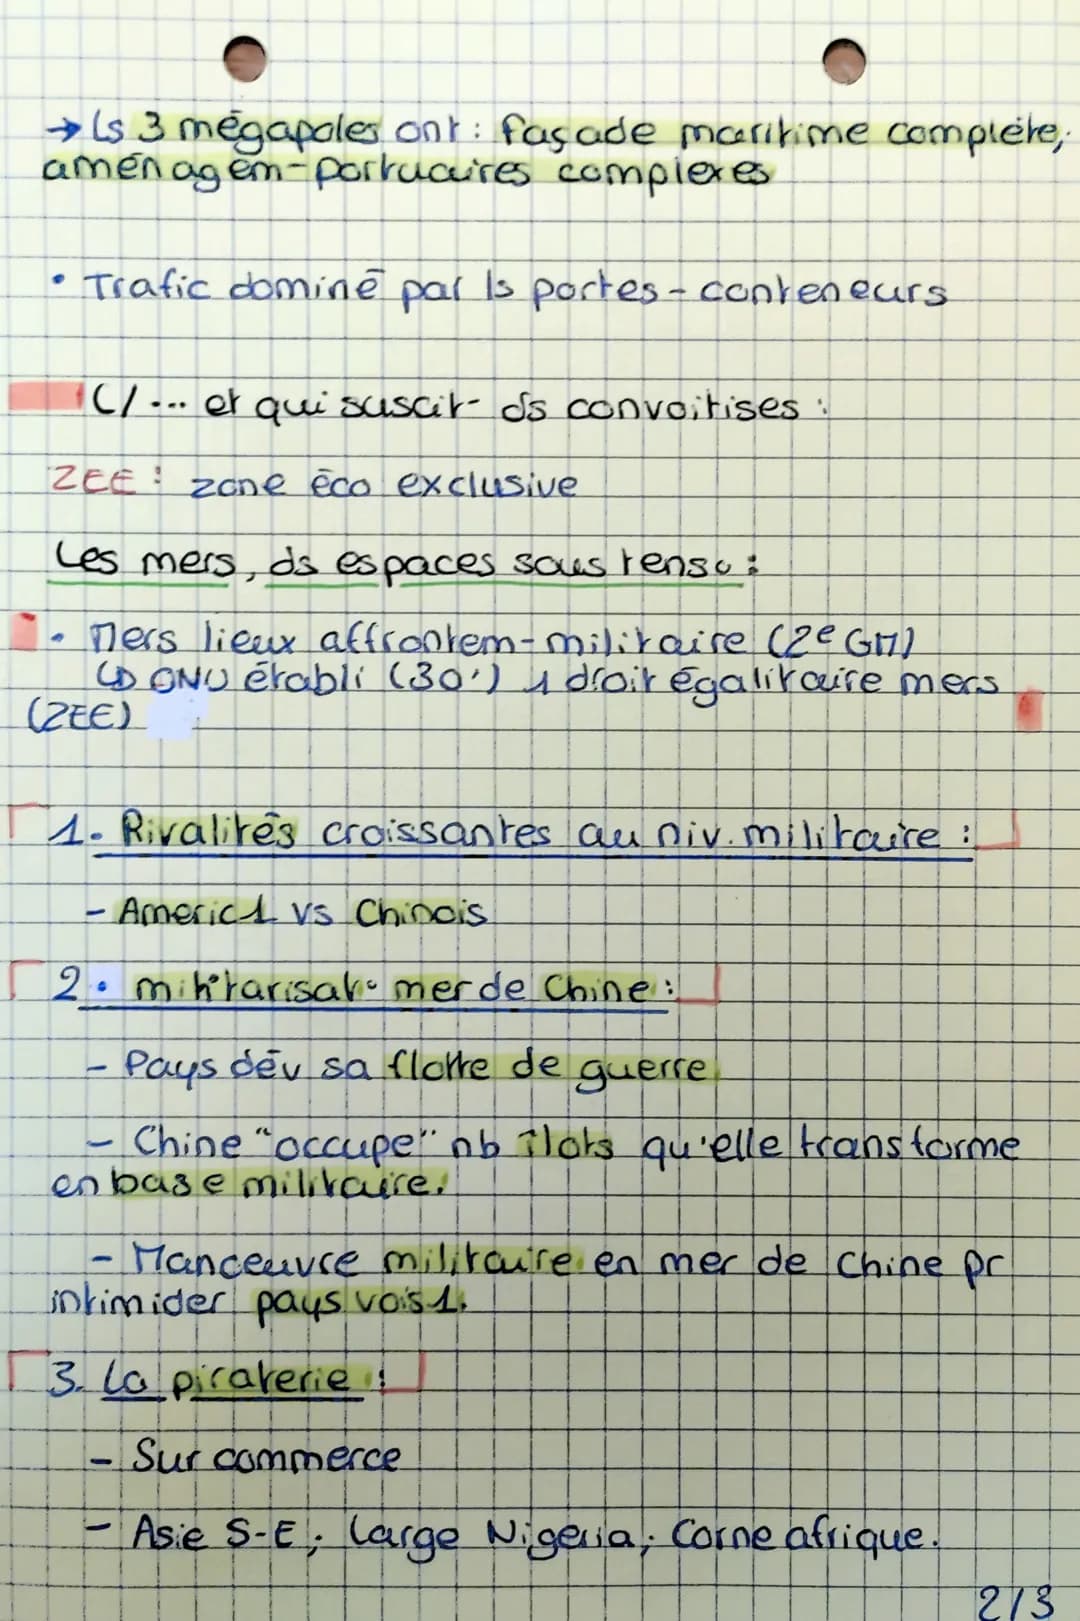 → Ls 3 mégapoles ont : façade maritime complète,
aménagem-portuaires complexes
• Trafic dominé par ls portes-conteneurs
C/ ... et qui suscit- ds convoitises :
ZEE : zone éco exclusive
Les mers, ds espaces sous tens° :
• Mers lieux affrontem-militaire (2e GM)
↳ ONU établi (30') 1 droit égalitaire mers
(ZEE)
1. Rivalités croissantes au niv. militaire :
- Americ1 vs Chinois
2. militarisat° mer de Chine :
- Pays dév sa flotte de guerre
- Chine "occupe" nb îlots qu'elle transforme
en base militaire.
- Manoeuvre militaire en mer de Chine pr
intimider pays vois1.
3. La piraterie :
- Sur commerce
- Asie S-E ; large Nigeria ; Corne afrique.
2/3